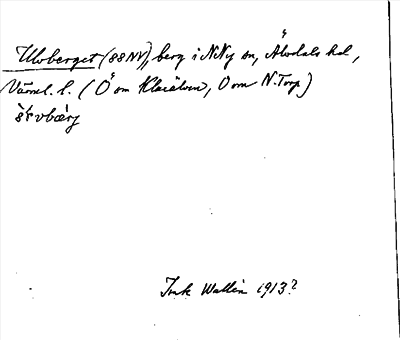 Ulvberget (88NV), berg i N.Ny sn, Älvdals hd,
Värml. l. (Ö om Klarälven, O om N.Torp)
Ink Wallin 1913?